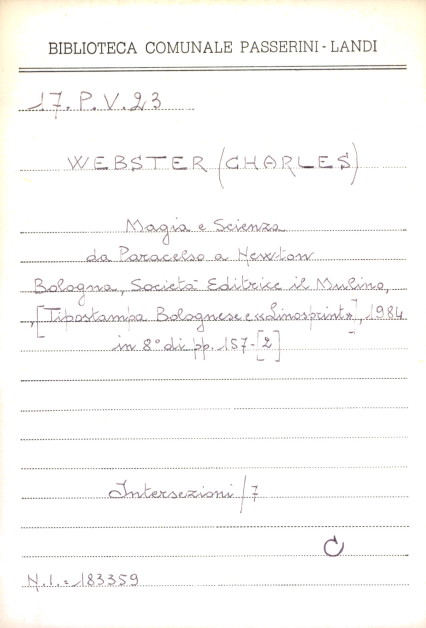 BIBLIOTECA COMUNALE PASSERINI-LANDI
17.P.V.23
WEBSTER (CHARLES)
Magia e Scienza
da Paracelso a Newton
Bologna, Società Editrice il Mulino,
[Tipostampa Bolognese e «Linosprint»], 1984
in 8° di pp. 157-[2]
Intersezioni/7
C
N.I.= 183359